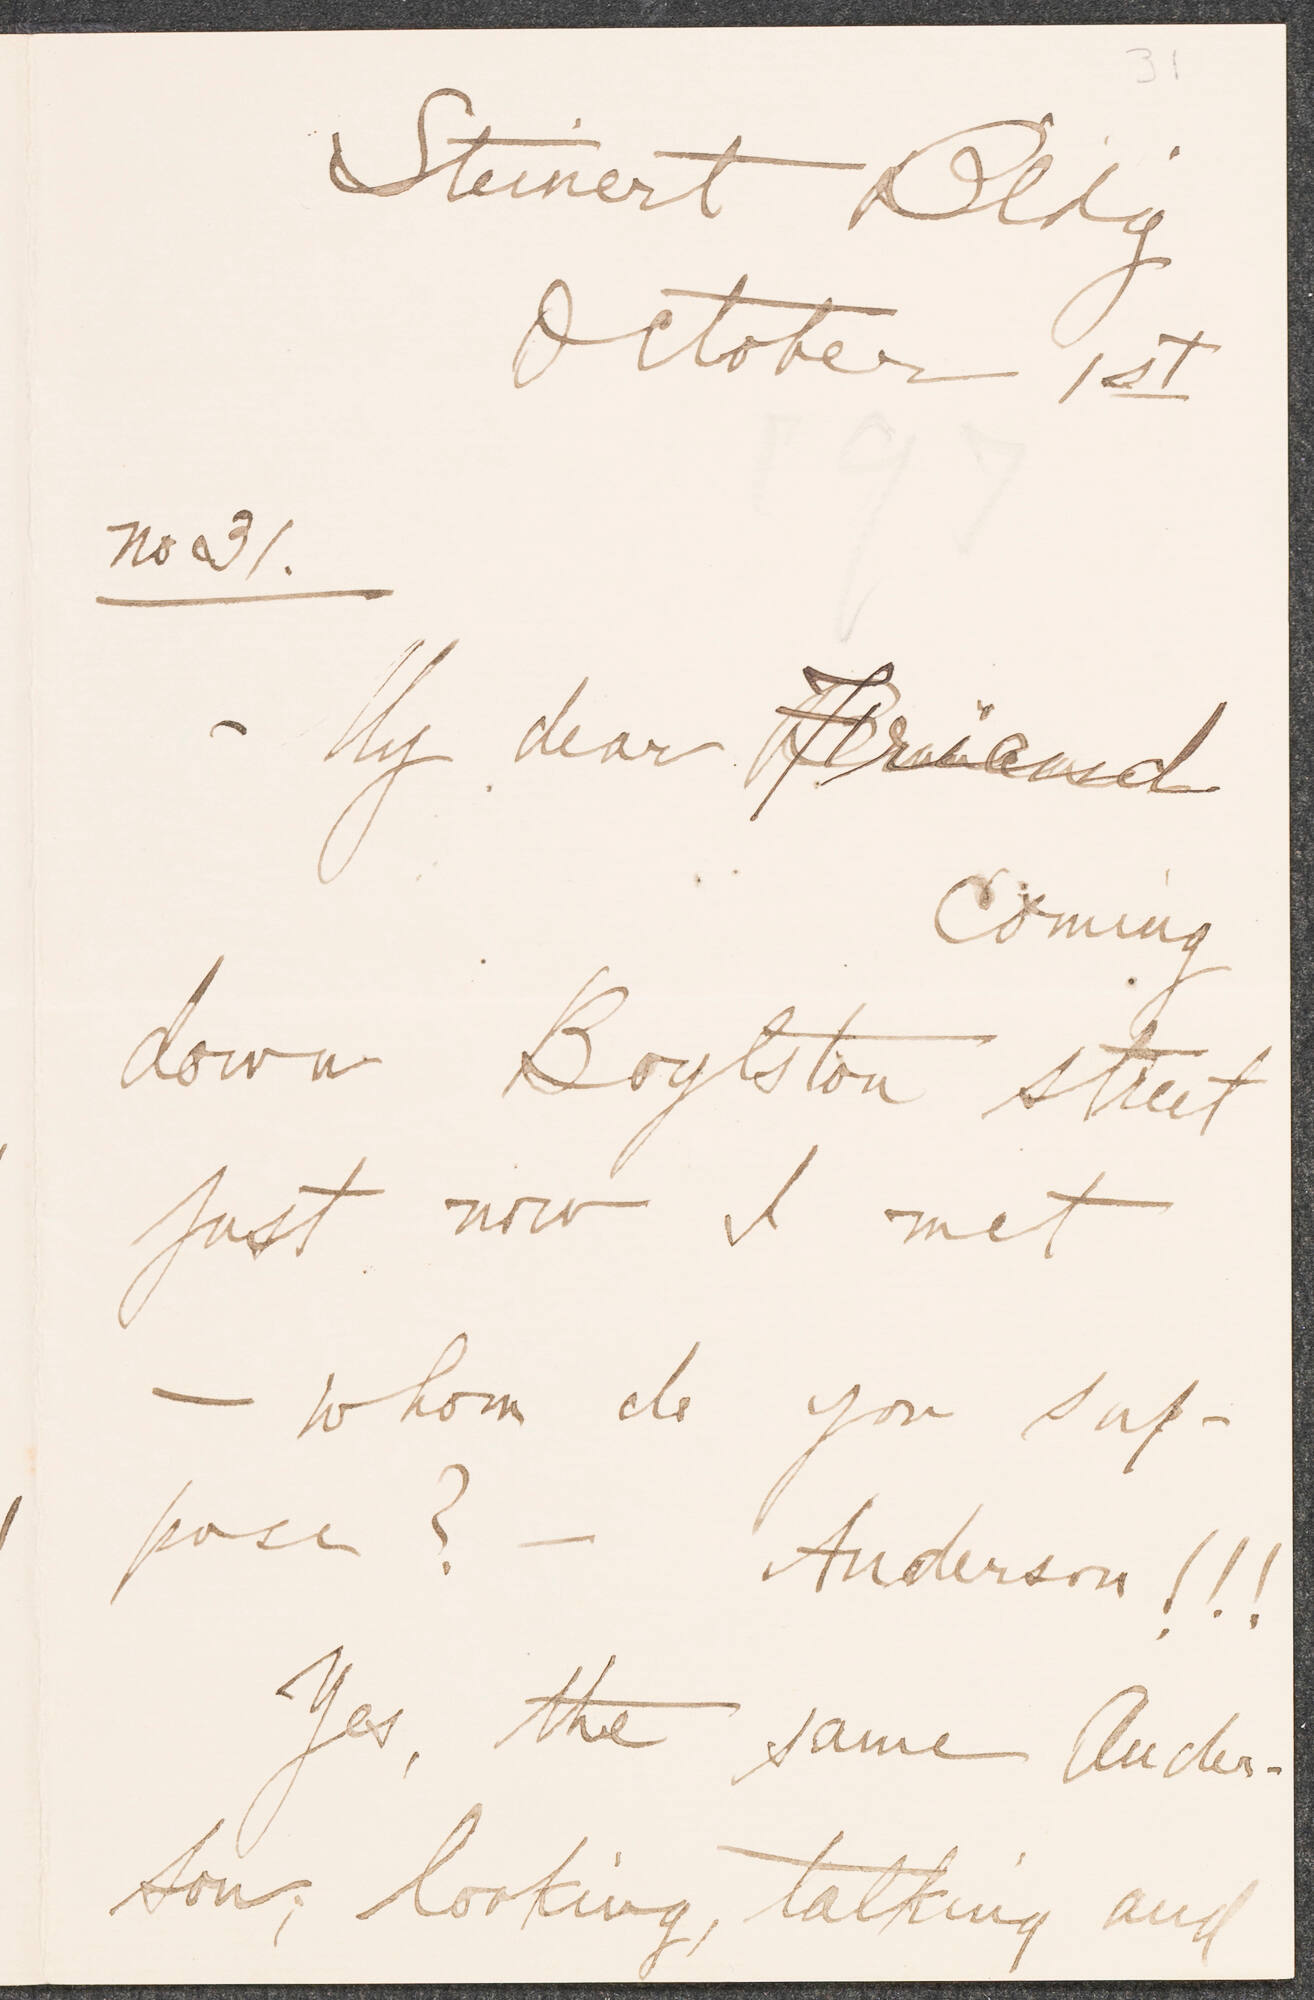 31
Steinert Bldg
October 1st
No 31.
- My dear Friend
Coming
down Boylston street
just now I met
— whom do you sup-
pose? — Anderson!!!
Yes, the same Ander-
son; looking, talking and